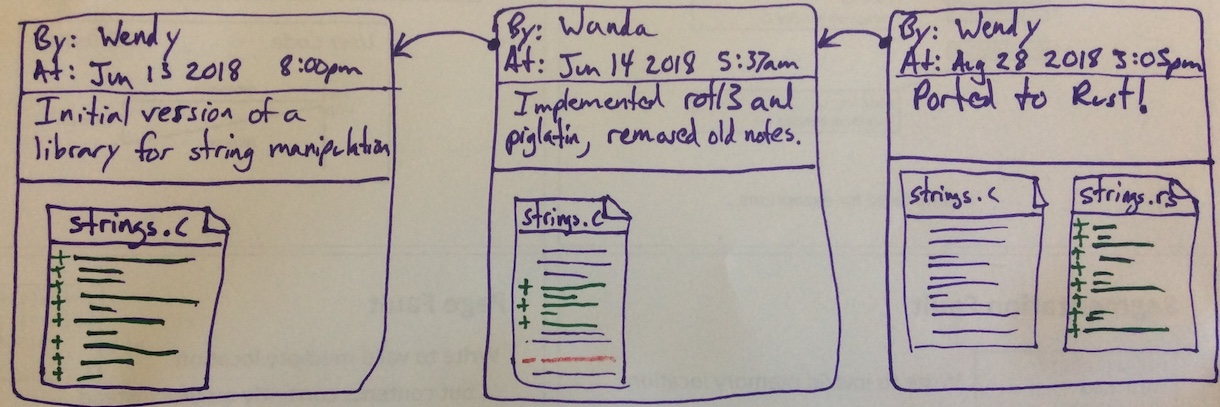 By: Wendy
At: Jun 13 2018 8:00pm
Initial version of a
library for string manipulation
strings.c
By: Wanda
At: Jun 14 2018 5:37am
Implemented rot13 and
piglatin, removed old notes.
strings.c
By: Wendy
At: Aug 28 2018 3:05pm
Ported to Rust!
strings.c
strings.rs
Page Fault